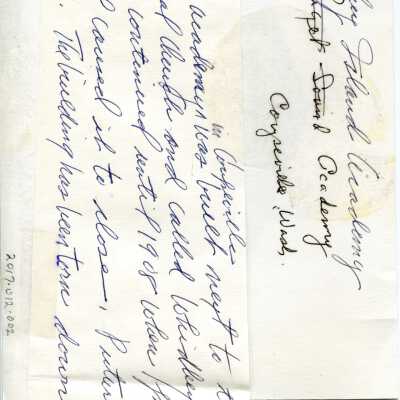 Island Academy
Puget Sound Academy
Coupeville, Wash.
in Coupeville
was built next to
and called Whidbey
continued until 1908 when
caused it to close.
The building has been torn down
2017.012.002